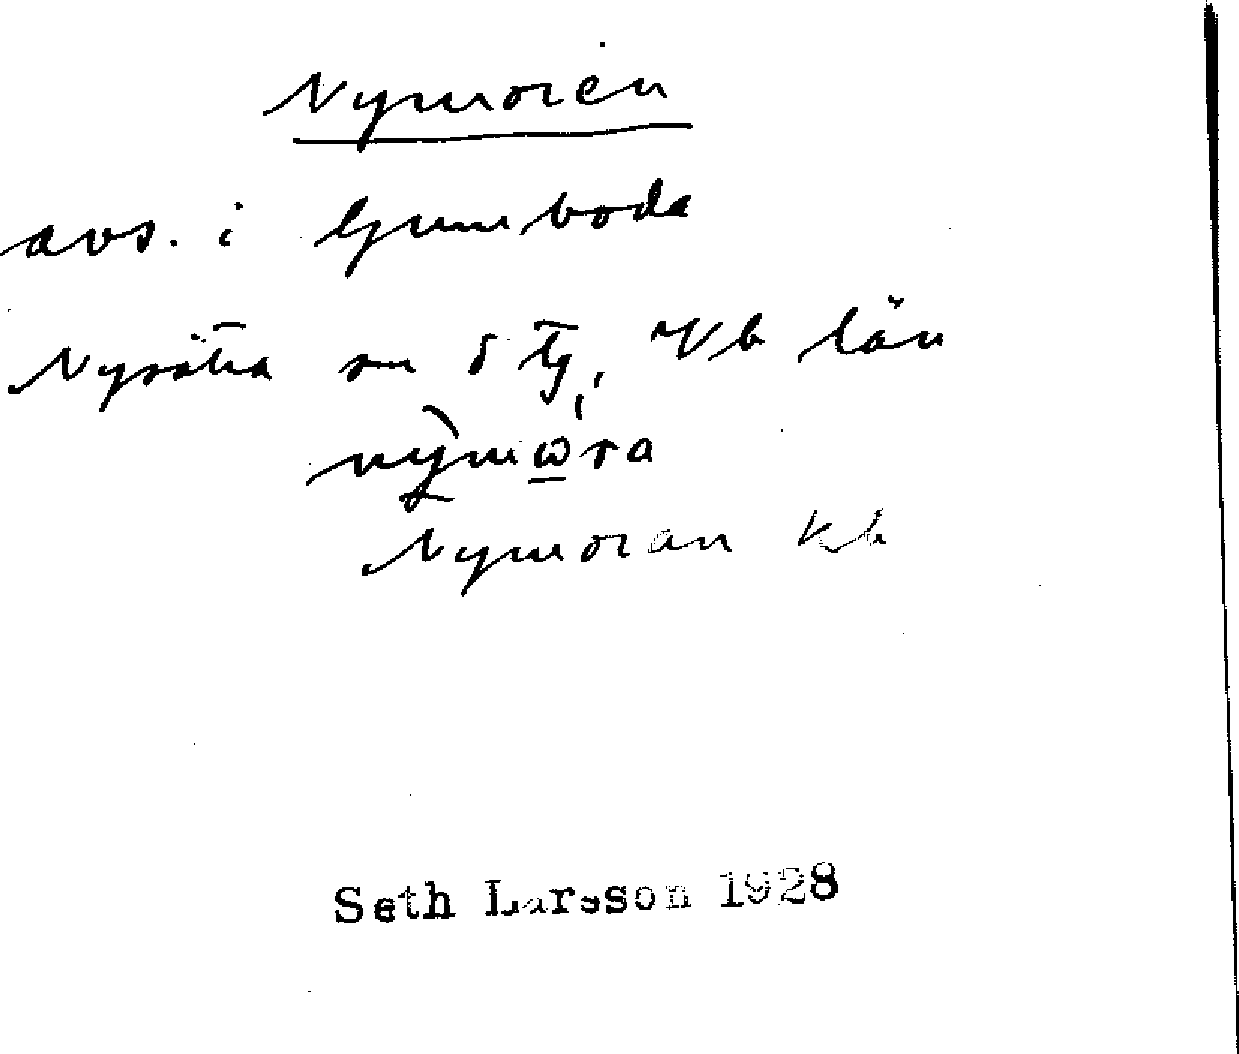 Nymoren
avs. i Gumboda
Nysätra sn S Tg, Vb län
nymωra
Nymoran Kb
Seth Larsson 1928